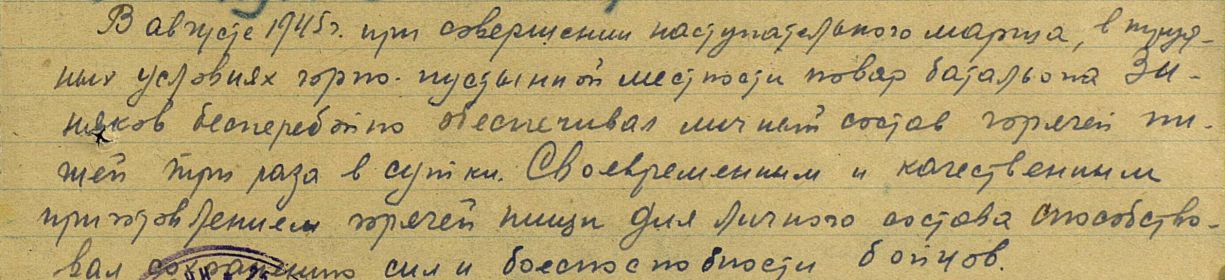 В августе 1945 г. при совершении наступательного марша, в труд-
ных условиях горно-пустынной местности повар батальона Зи-
няков бесперебойно обеспечивал личный состав горячей пи-
щей три раза в сутки. Своевременным и качественным
приготовлением горячей пищи для личного состава способство-
вал сохранению сил и боеспособности бойцов.